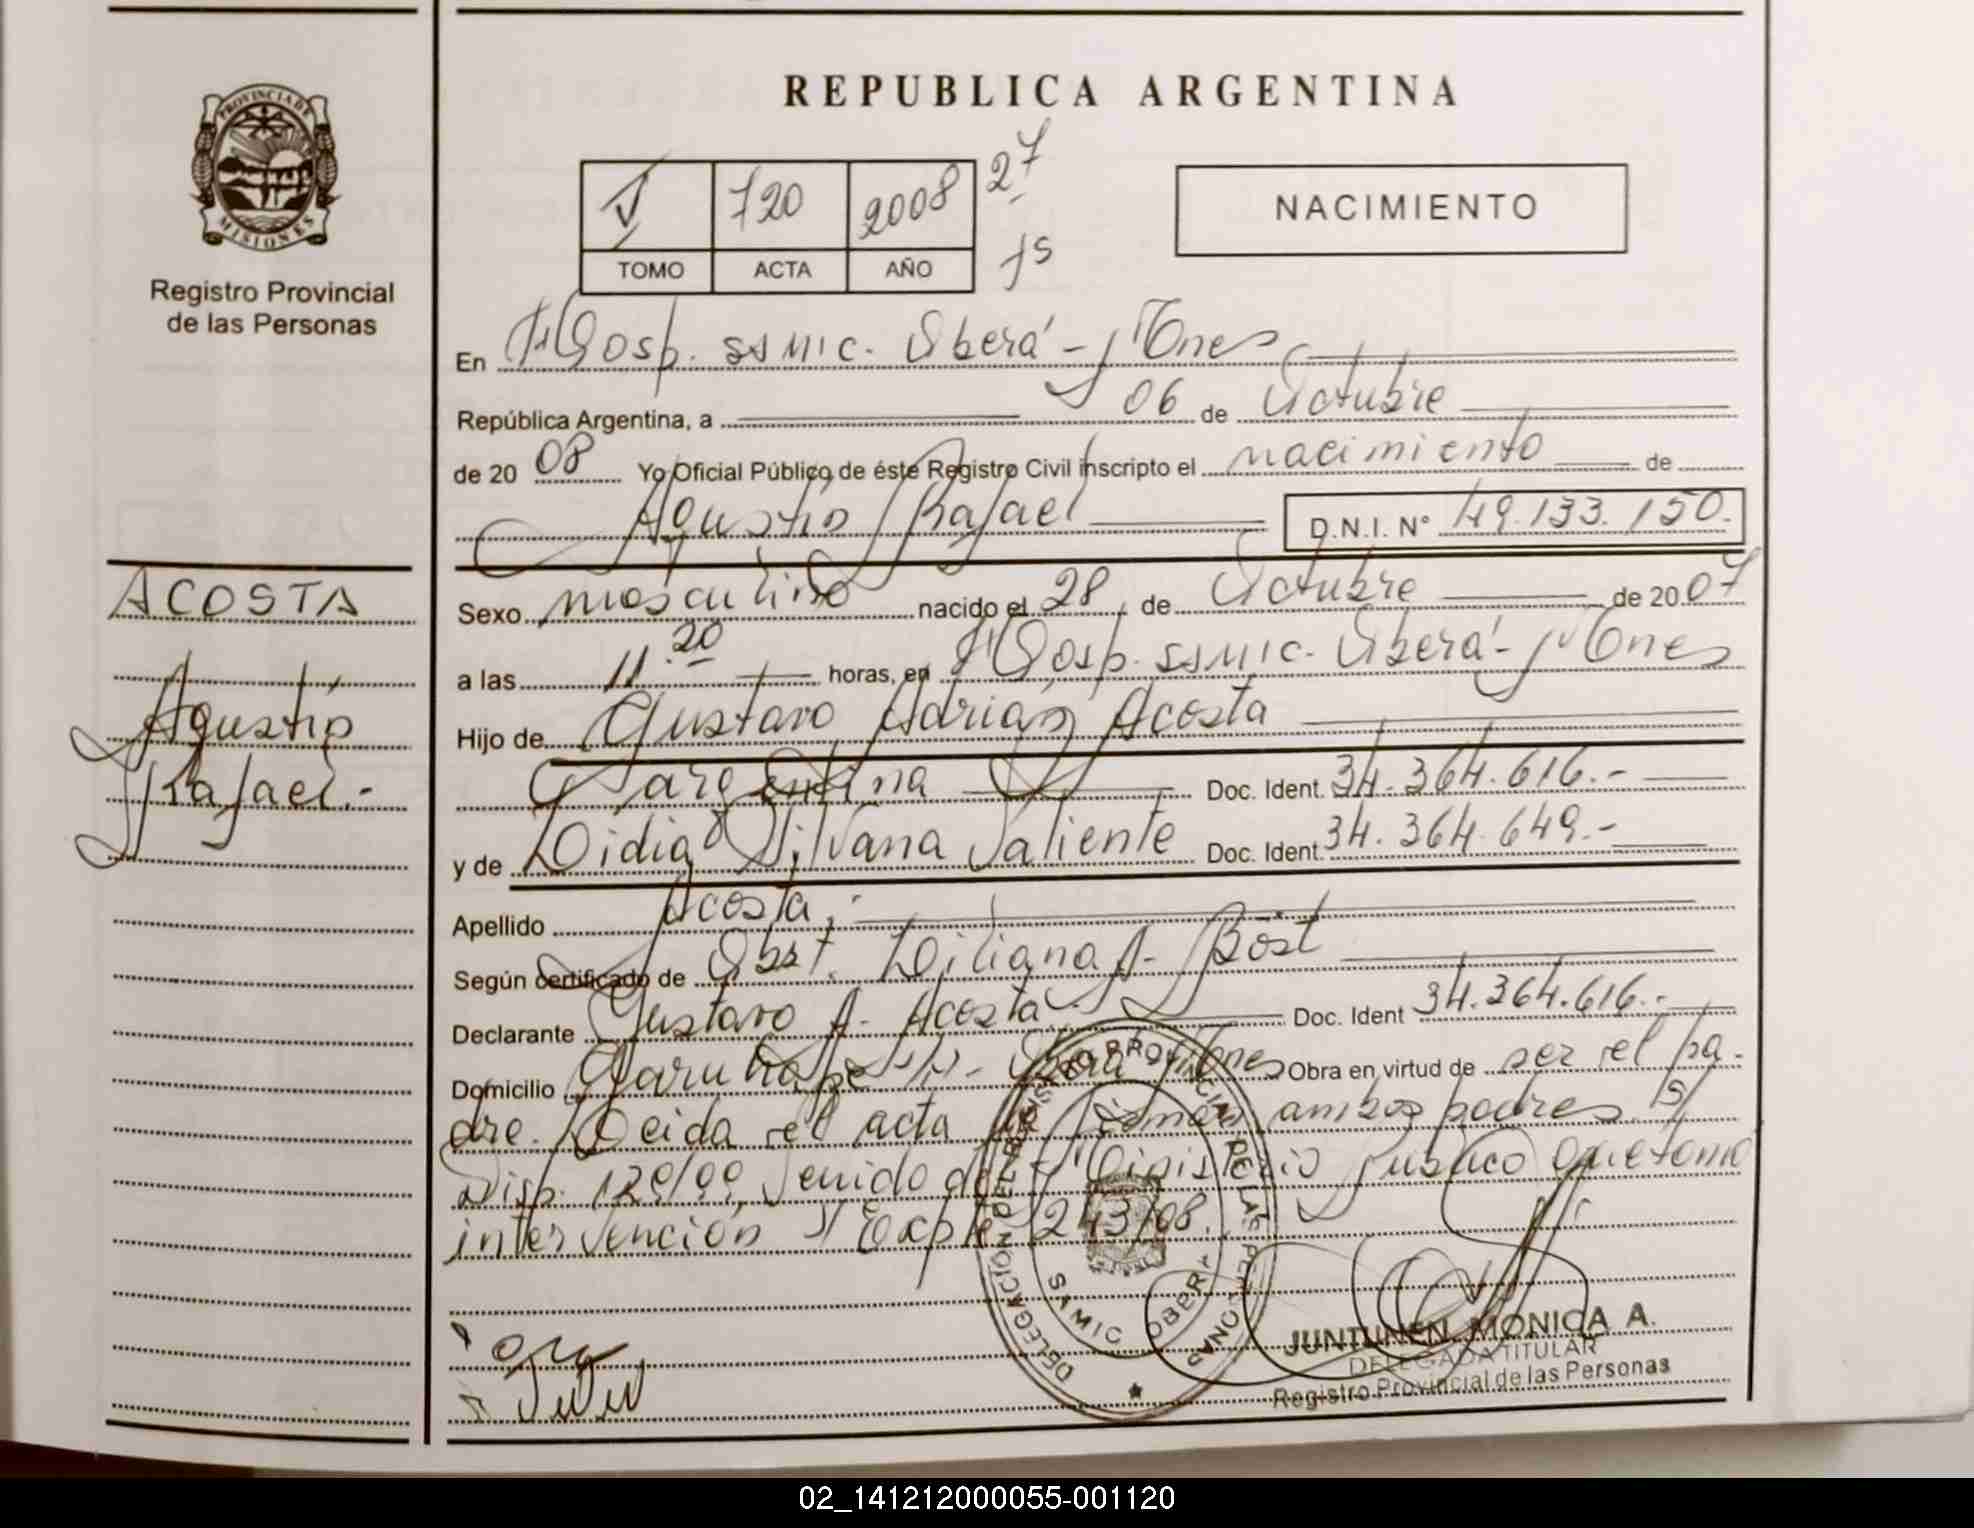 REPUBLICA ARGENTINA
PROVINCIA DE
MISIONES
Registro Provincial
de las Personas
V 720 2008 27
TOMO ACTA AÑO
NACIMIENTO
En Hosp. SAMIC. Oberá - Mnes
República Argentina, a 06 de Octubre
de 2008 Yo Oficial Público de éste Registro Civil inscripto el nacimiento de
Agustín Rafael D.N.I. N° 49.133.150.
ACOSTA
Agustín
Rafael.-
Sexo masculino nacido el 28 de Octubre de 2007
a las 11.20 horas, en Hosp. SAMIC. Oberá - Mnes
Hijo de Gustavo Adrián Acosta
argentina Doc. Ident. 34.364.616.-
y de Lidia Silvana Valiente Doc. Ident. 34.364.649.-
Apellido Acosta.-
Según certificado de Obst. Liliana A. Bost
Declarante Gustavo A. Acosta Doc. Ident 34.364.616.-
Domicilio Garuhapé Oberá Mnes Obra en virtud de ser el pa-
dre. Leida el acta firman ambos padres. S/
Disp. 120/99, Venido del Ministerio Publico que tomó
intervención Expte 243/08.
DELEGACION DEL REGISTRO PROVINCIAL DE LAS PERSONAS
SAMIC OBERA
JUNTUNEN, MONICA A.
DELEGADA TITULAR
Registro Provincial de las Personas
02_141212000055-001120